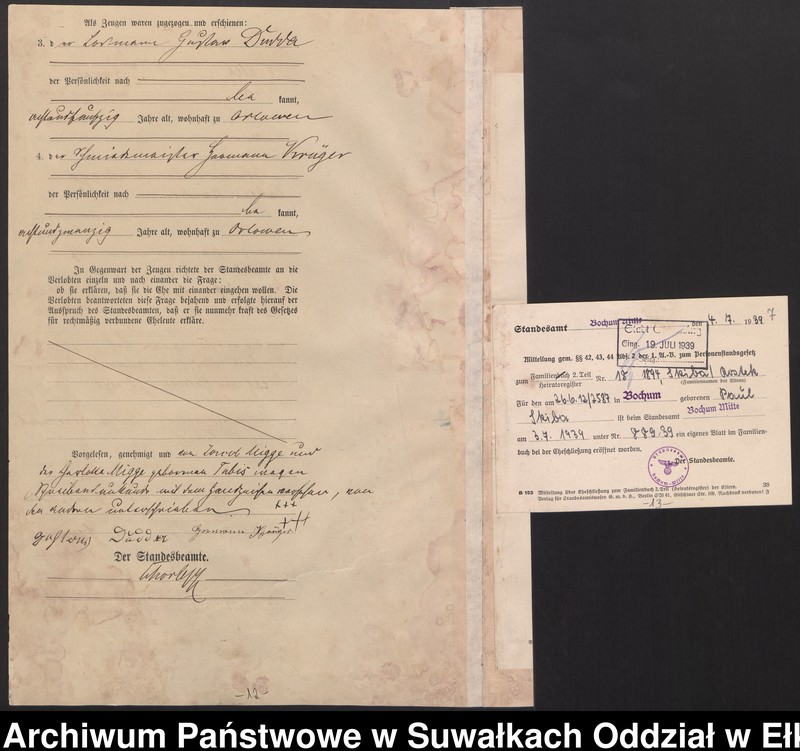 Als Zeugen waren zugezogen und erschienen:
3. der Losmann Gustav Dudda
der Persönlichkeit nach
be kannt,
achtundfünfzig Jahre alt, wohnhaft zu Orlowen
4. der Schmiedemeister Hermann Krüger
der Persönlichkeit nach
be kannt,
achtundzwanzig Jahre alt, wohnhaft zu Orlowen
In Gegenwart der Zeugen richtete der Standesbeamte an die
Verlobten einzeln und nach einander die Frage:
ob sie erklären, daß sie die Ehe mit einander eingehen wollen. Die
Verlobten beantworteten diese Frage bejahend und erfolgte hierauf der
Ausspruch des Standesbeamten, daß er sie nunmehr kraft des Gesetzes
für rechtmäßig verbundene Eheleute erkläre.
Vorgelesen, genehmigt und von Migge und
der Charlotte Migge geborenen wegen
Schreibensunkunde mit dem Handzeichen versehen, von
den anderen unterschrieben
+++
+++
Dudda Hermann Krüger
Der Standesbeamte.
-12-
Standesamt Bochum Mitte den 4. 7. 1939
7
Eing. 19. JULI 1939
Mitteilung gem. §§ 42, 43, 44 Abs. 2 der 1. A.-B. zum Personenstandsgesetz
zum Familienbuch 2. Teil
Heiratsregister Nr. 18 1894, Skiba/
(Familiennamen der Eltern)
Für den am 26.6.12/2587 in Bochum geborenen Paul
Skiba ist beim Standesamt Bochum Mitte
am 3.7. 1939 unter Nr. 889.39 ein eigenes Blatt im Familien-
buch bei der Eheschließung eröffnet worden.
Der Standesbeamte.
B 153 Mitteilung über Eheschließung zum Familienbuch 2. Teil (Heiratsregister) der Eltern. 38
Verlag für Standesamtswesen G. m. b. H., Berlin SW 61, Gitschiner Str. 109. Nachdruck verboten!
-13-
Archiwum Państwowe w Suwałkach Oddział w Eł